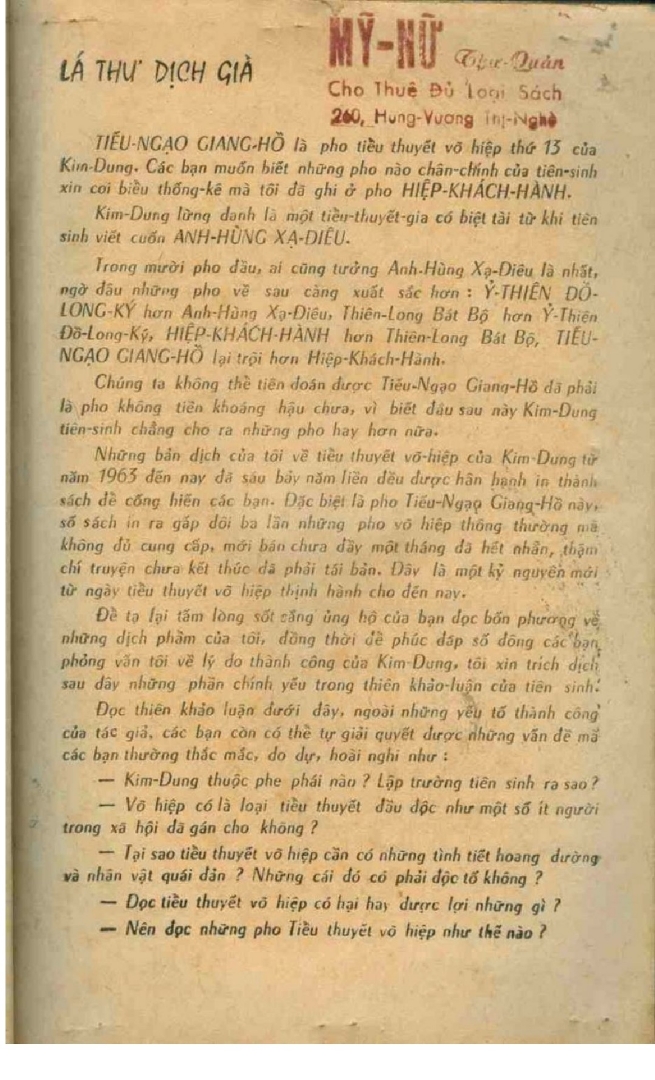 LÁ THƯ DỊCH GIẢ
MỸ-NỮ Thư-Quán
Cho Thuê Đủ Loại Sách
260, Hùng-Vương Thị-Nghè
TIẾU-NGẠO GIANG-HỒ là pho tiểu thuyết võ hiệp thứ 13 của
Kim-Dung. Các bạn muốn biết những pho nào chân-chính của tiên-sinh
xin coi biểu thống-kê mà tôi đã ghi ở pho HIỆP-KHÁCH-HÀNH.
Kim-Dung lừng danh là một tiểu-thuyết-gia có biệt tài từ khi tiên
sinh viết cuốn ANH-HÙNG XẠ-ĐIÊU.
Trong mười pho đầu, ai cũng tưởng Anh-Hùng Xạ-Điêu là nhất,
ngờ đâu những pho về sau càng xuất sắc hơn : Ỷ-THIÊN ĐỒ-
LONG-KÝ hơn Anh-Hùng Xạ-Điêu, Thiên-Long Bát Bộ hơn Ỷ-Thiên
Đồ-Long-Ký, HIỆP-KHÁCH-HÀNH hơn Thiên-Long Bát Bộ, TIẾU-
NGẠO GIANG-HỒ lại trội hơn Hiệp-Khách-Hành.
Chúng ta không thể tiên đoán được Tiếu-Ngạo Giang-Hồ đã phải
là pho không tiền khoáng hậu chưa, vì biết đâu sau này Kim-Dung
tiên-sinh chẳng cho ra những pho hay hơn nữa.
Những bản dịch của tôi về tiểu thuyết võ-hiệp của Kim-Dung từ
năm 1963 đến nay đã sáu bảy năm liền đều được hân hạnh in thành
sách để cống hiến các bạn. Đặc biệt là pho Tiếu-Ngạo Giang-Hồ này,
số sách in ra gấp đôi ba lần những pho võ hiệp thông thường mà
không đủ cung cấp, mới bán chưa đầy một tháng đã hết nhẵn, thậm
chí truyện chưa kết thúc đã phải tái bản. Đây là một kỷ nguyên mới
từ ngày tiểu thuyết võ hiệp thịnh hành cho đến nay.
Để tạ lại tấm lòng sốt sắng ủng hộ của bạn đọc bốn phương về
những dịch phẩm của tôi, đồng thời để phúc đáp số đông các bạn
phỏng vấn tôi về lý do thành công của Kim-Dung, tôi xin trích dịch
sau đây những phần chính yếu trong thiên khảo-luận của tiên sinh.
Đọc thiên khảo luận dưới đây, ngoài những yếu tố thành công
của tác giả, các bạn còn có thể tự giải quyết được những vấn đề mà
các bạn thường thắc mắc, do dự, hoài nghi như :
— Kim-Dung thuộc phe phái nào ? Lập trường tiên sinh ra sao ?
— Võ hiệp có là loại tiểu thuyết đầu độc như một số ít người
trong xã hội đã gán cho không ?
— Tại sao tiểu thuyết võ hiệp cần có những tình tiết hoang đường
và nhân vật quái đản ? Những cái đó có phải độc tố không ?
— Đọc tiểu thuyết võ hiệp có hại hay được lợi những gì ?
— Nên đọc những pho Tiểu thuyết võ hiệp như thế nào ?